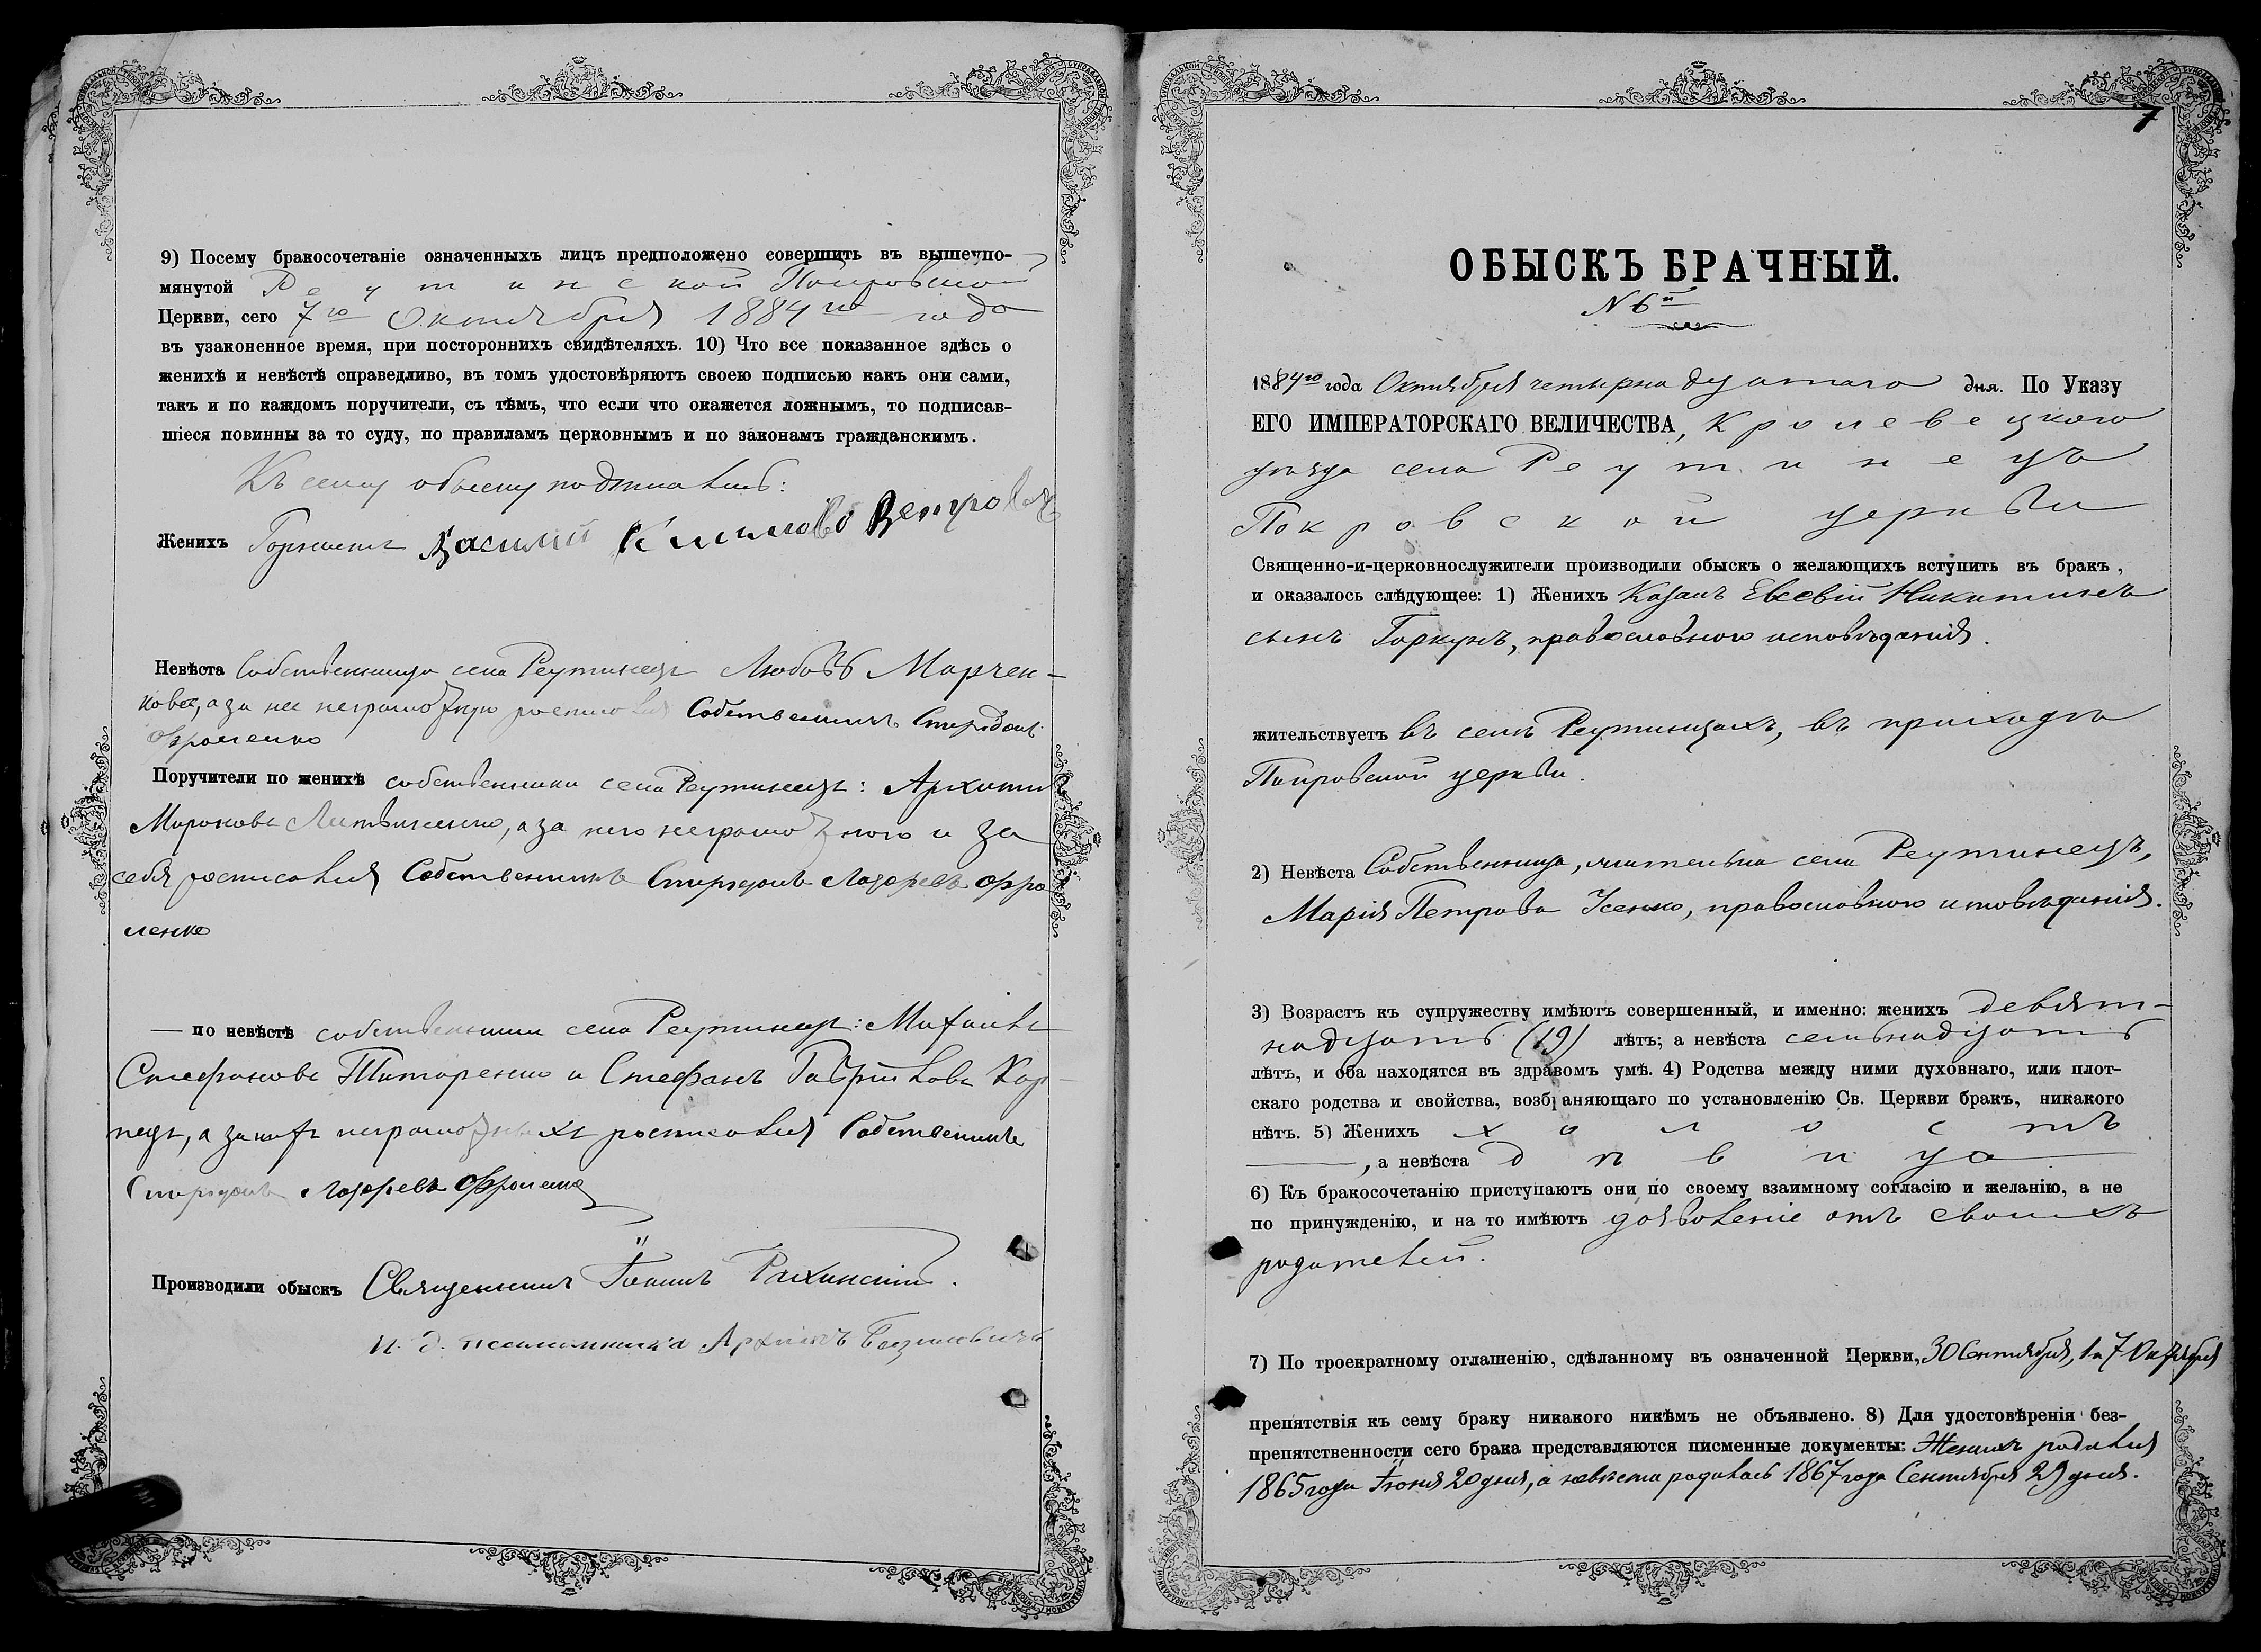 9) Посему бракосочетаніе означенныхъ лицъ предположено совершить въ вышеупо-
мянутой Реутинской Покровской
Церкви, сего 7го Октября 1884го года
въ узаконенное время, при постороннихъ свидѣтеляхъ. 10) Что все показанное здѣсь о
женихѣ и невѣстѣ справедливо, въ томъ удостовѣряютъ своею подписью какъ они сами,
такъ и по каждомъ поручители, съ тѣмъ, что если что окажется ложнымъ, то подписав-
шіеся повинны за то суду, по правиламъ церковнымъ и по законамъ гражданскимъ.
Къ сему обыску подписались:
Женихъ Василій Климовъ
Невѣста Собственница села Реутинецъ Любовь Марчен-
кова, а за нее неграмотную росписался Собственникъ Спиридонъ
Фроленко
Поручители по женихѣ собственники села Реутинецъ: Архипъ
Мироновъ Литвиненко, а за него неграмотного и за
себя росписался Собственникъ Спиридонъ Лазоревъ Фро
ленко
— по невѣстѣ собственники села Реутинецъ: Михаилъ
Стефановъ Титаренко и Стефанъ Гавриловъ Кар-
пецъ, а за нихъ неграмотныхъ росписался Собственникъ
Спиридонъ Лазоревъ Фроленко
Производили обыскъ Священникъ Іоаннъ Рахинскій.
и. д. псаломщика
7
ОБЫСКЪ БРАЧНЫЙ.
N 6й
1884го года Октября четырнадцатаго дня. По Указу
ЕГО ИМПЕРАТОРСКАГО ВЕЛИЧЕСТВА, Кролевецкого
уѣзда села Реутинецъ
Покровской церкви
Священно-и-церковнослужители производили обыскъ о желающихъ вступить въ бракъ,
и оказалось слѣдующее: 1) Женихъ Казакъ Евсевій Никитинъ
сынъ Горкунъ, православного исповѣданія.
жительствуетъ въ селѣ Реутинцахъ, въ приходѣ
Покровской церкви.
2) Невѣста Собственница, жителька села Реутинецъ,
Марія Петрова Усенко, православного исповѣданія.
3) Возрастъ къ супружеству имѣютъ совершенный, и именно: женихъ девят-
надцать (19) лѣтъ; а невѣста семьнадцать
лѣтъ, и оба находятся въ здравомъ умѣ. 4) Родства между ними духовнаго, или плот-
скаго родства и свойства, возбраняющаго по установленію Св. Церкви бракъ, никакого
нѣтъ. 5) Женихъ холостъ
, а невѣста дѣвица
6) Къ бракосочетанію приступаютъ они по своему взаимному согласію и желанію, а не
по принужденію, и на то имѣютъ дозволеніе отъ своихъ
родителей.
7) По троекратному оглашенію, сдѣланному въ означенной Церкви, 30 Сентября, 1 и 7 Октября
препятствія къ сему браку никакого никѣмъ не объявлено. 8) Для удостовѣренія без-
препятственности сего брака представляются писменные документы: Женихъ родился
1865 года Іюня 20 дня, а невѣста родилась 1867 года Сентября 29 дня.